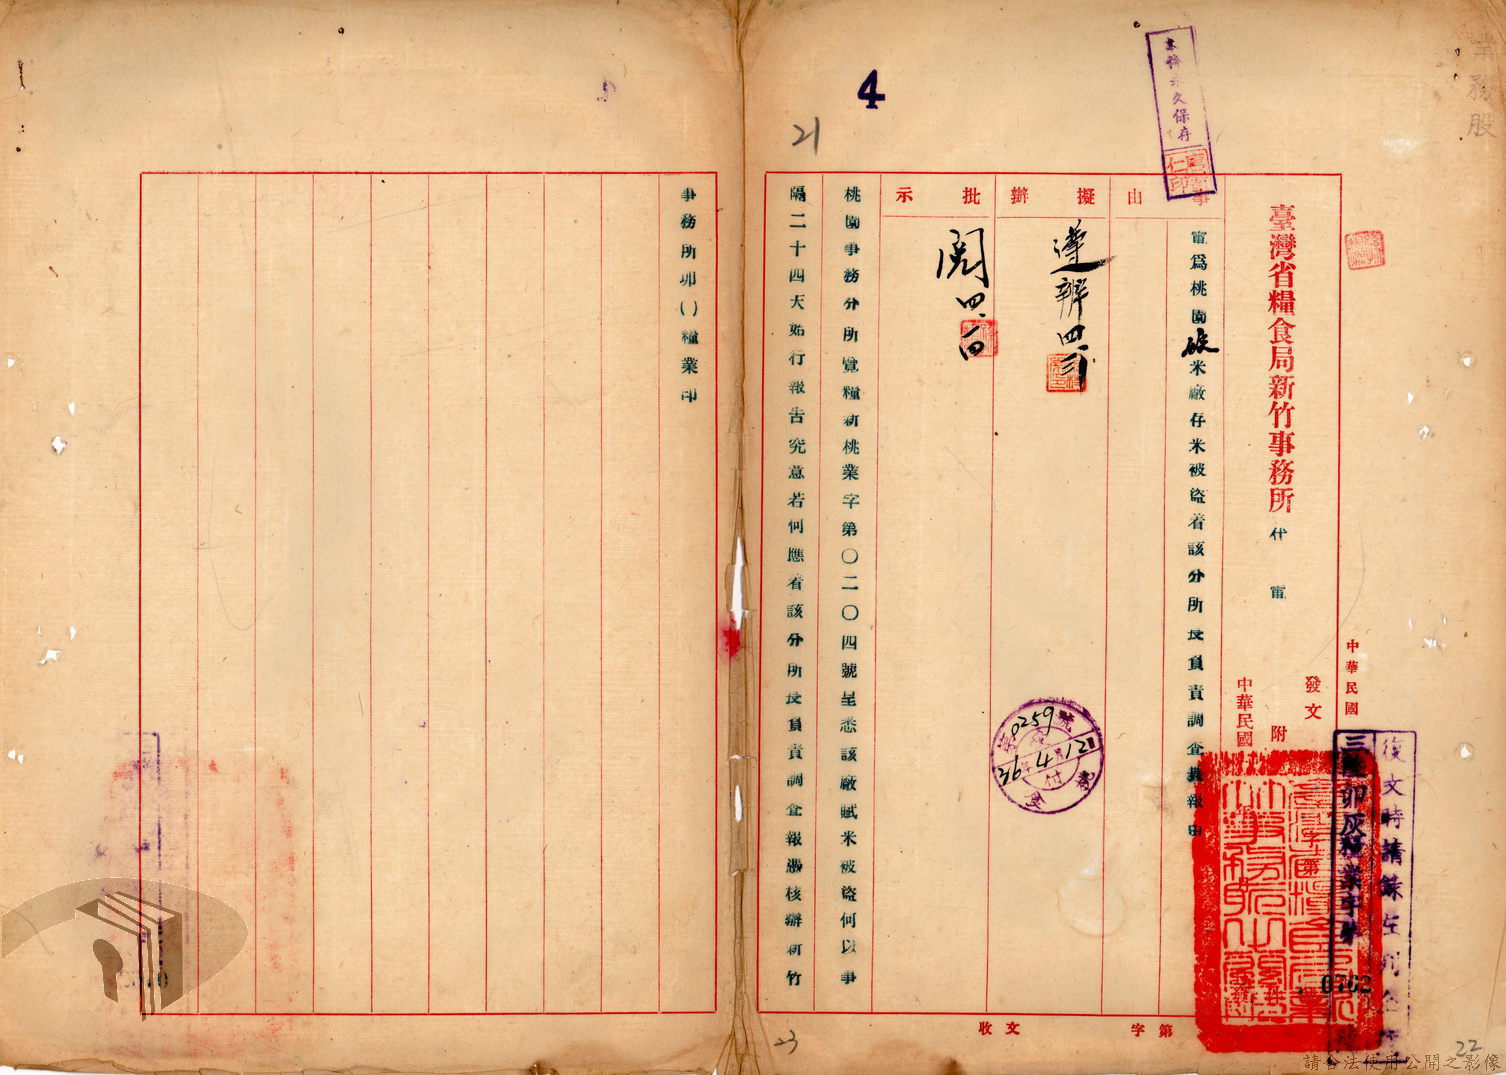 業務股
本件永久保存
4
21
臺灣省糧食局新竹事務所 代電
中華民國
發文
附
中華民國
復文時請錄左列
三 卯灰糧業字第
0762
事由
電為桃園碾米廠存米被盜着該分所長負責調查具報由
擬辦
遵辦 四、三
批示
閱 四、四
0259
36 4 12
收文 字第
桃園事務分所覽糧新桃業字第〇二〇四號呈悉該廠賦米被盜何以事
隔二十四天始行報告究意若何應着該分所長負責調查報憑核辦新竹
事務所卯()糧業印
23
22
請合法使用公開之影像